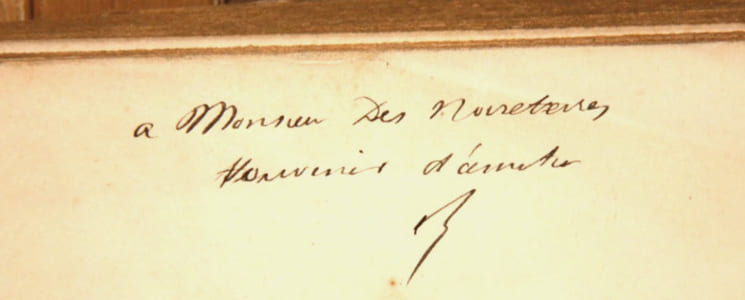 a Monsieu Des Noireterres
Souvenir d'amitié